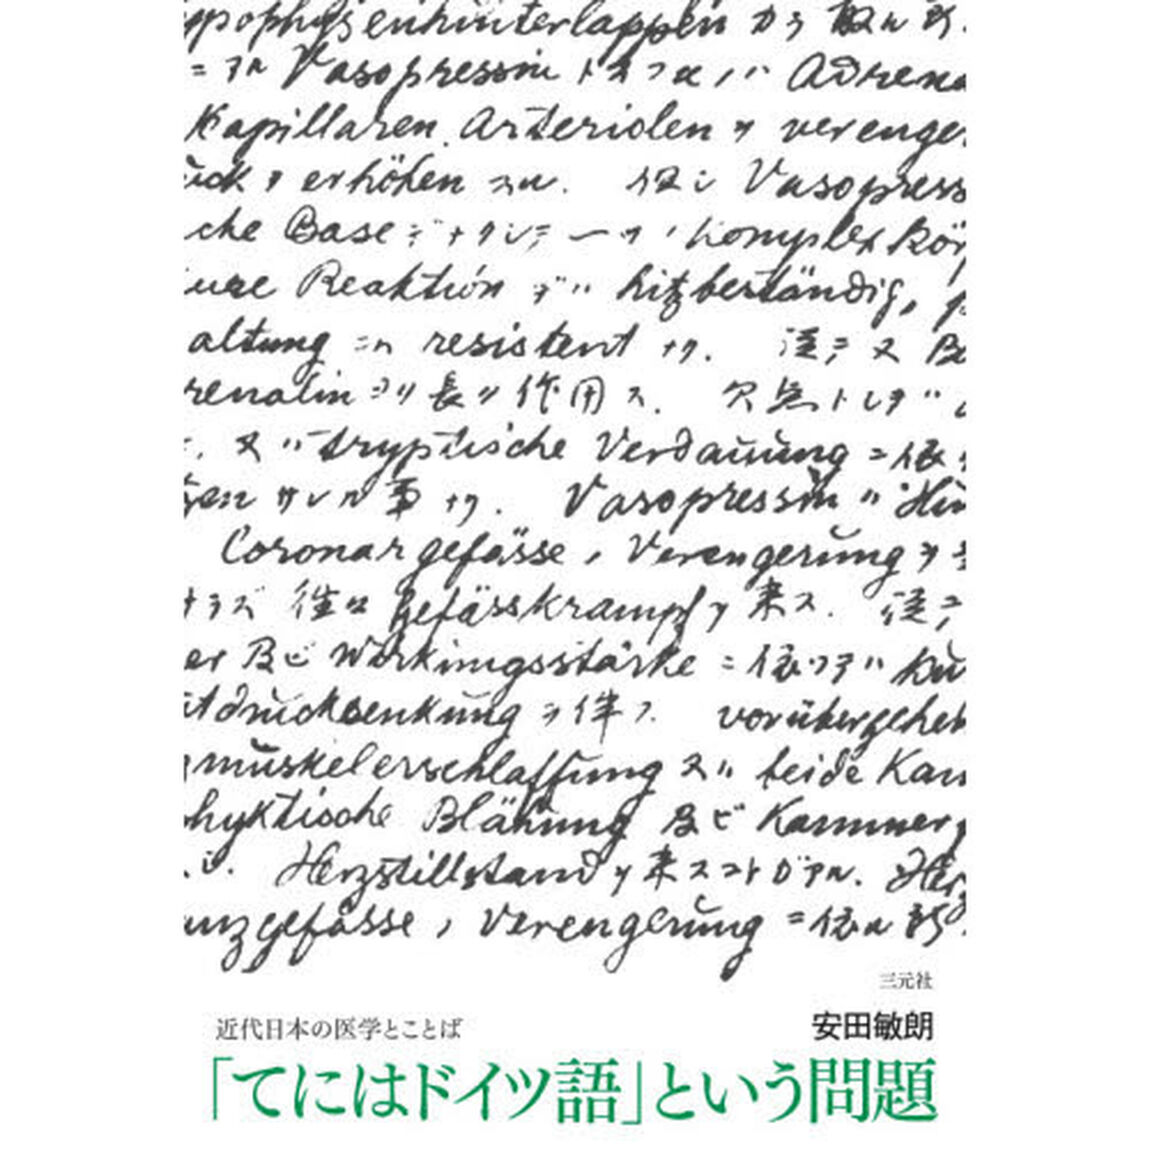 ypophysenhinterlappen カラ 取ル所.
= アル Vasopressin トスフα ハ Adrena
Kapillaren Arteriolen ヲ verenge
ück ヲ erhöhen スル. 但シ Vasopress
che Base ナ 一 ノ Komplex Kör
ure Reaktion デハ hitzbeständig,
altung ニハ resistent ナリ. 従テ又
renalin ヨリ長ク作用ス. 欠点トシテハ
又ハ tryptische Verdauung ニ依
gen サレル事ナリ. Vasopressin ハ
Coronargefässe ノ Verengerung ヲ
ナラズ 往々 Gefässkrampf ヲ来ス. 従テ
er 及ビ Wirkungsstärke ニ依ツテハ
tdrucksenkung ヲ伴フ. vorübergehen
muskelerschlaffung 又ハ beide Kam
phyktische Blähung 及ビ Kammer
Herzstillstand ヲ来スコトガアル. Her
anzgefässe ノ Verengerung ニ依ル所.
三元社
近代日本の医学とことば
安田敏朗
「てにはドイツ語」という問題